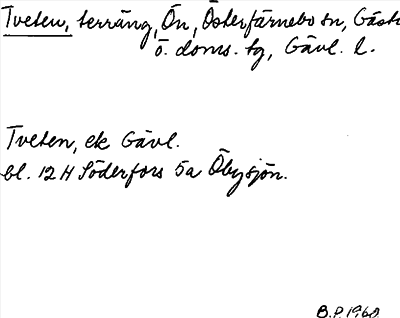 Tveten, terräng, Ön, Österfärnebo sn, Gästr
ö. doms. tg, Gävl. l.
Tveten, ek Gävl.
bl. 12 H Söderfors 5a Öbysjön.
B.P. 1968